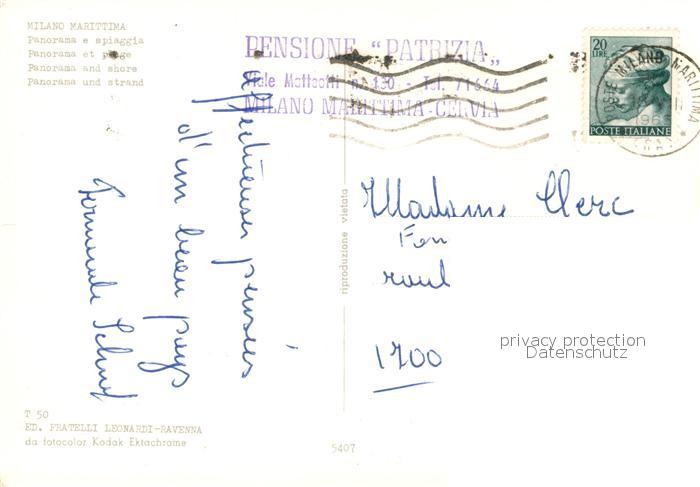 MILANO MARITTIMA
Panorama e spiaggia
Panorama et plage
Panorama and shore
Panorama und strand
PENSIONE "PATRIZIA"
Viale Matteotti n. 130 - Tel. 71664
MILANO MARITTIMA-CERVIA
20
LIRE
POSTE ITALIANE
MILANO MARITTIMA
Affectueuses pensées
d'un beau pays
riproduzione vietata
Madame Clerc
raoul
1700
privacy protection
Datenschutz
T 50
ED. FRATELLI LEONARDI-RAVENNA
da fotocolor Kodak Ektachrome
5407